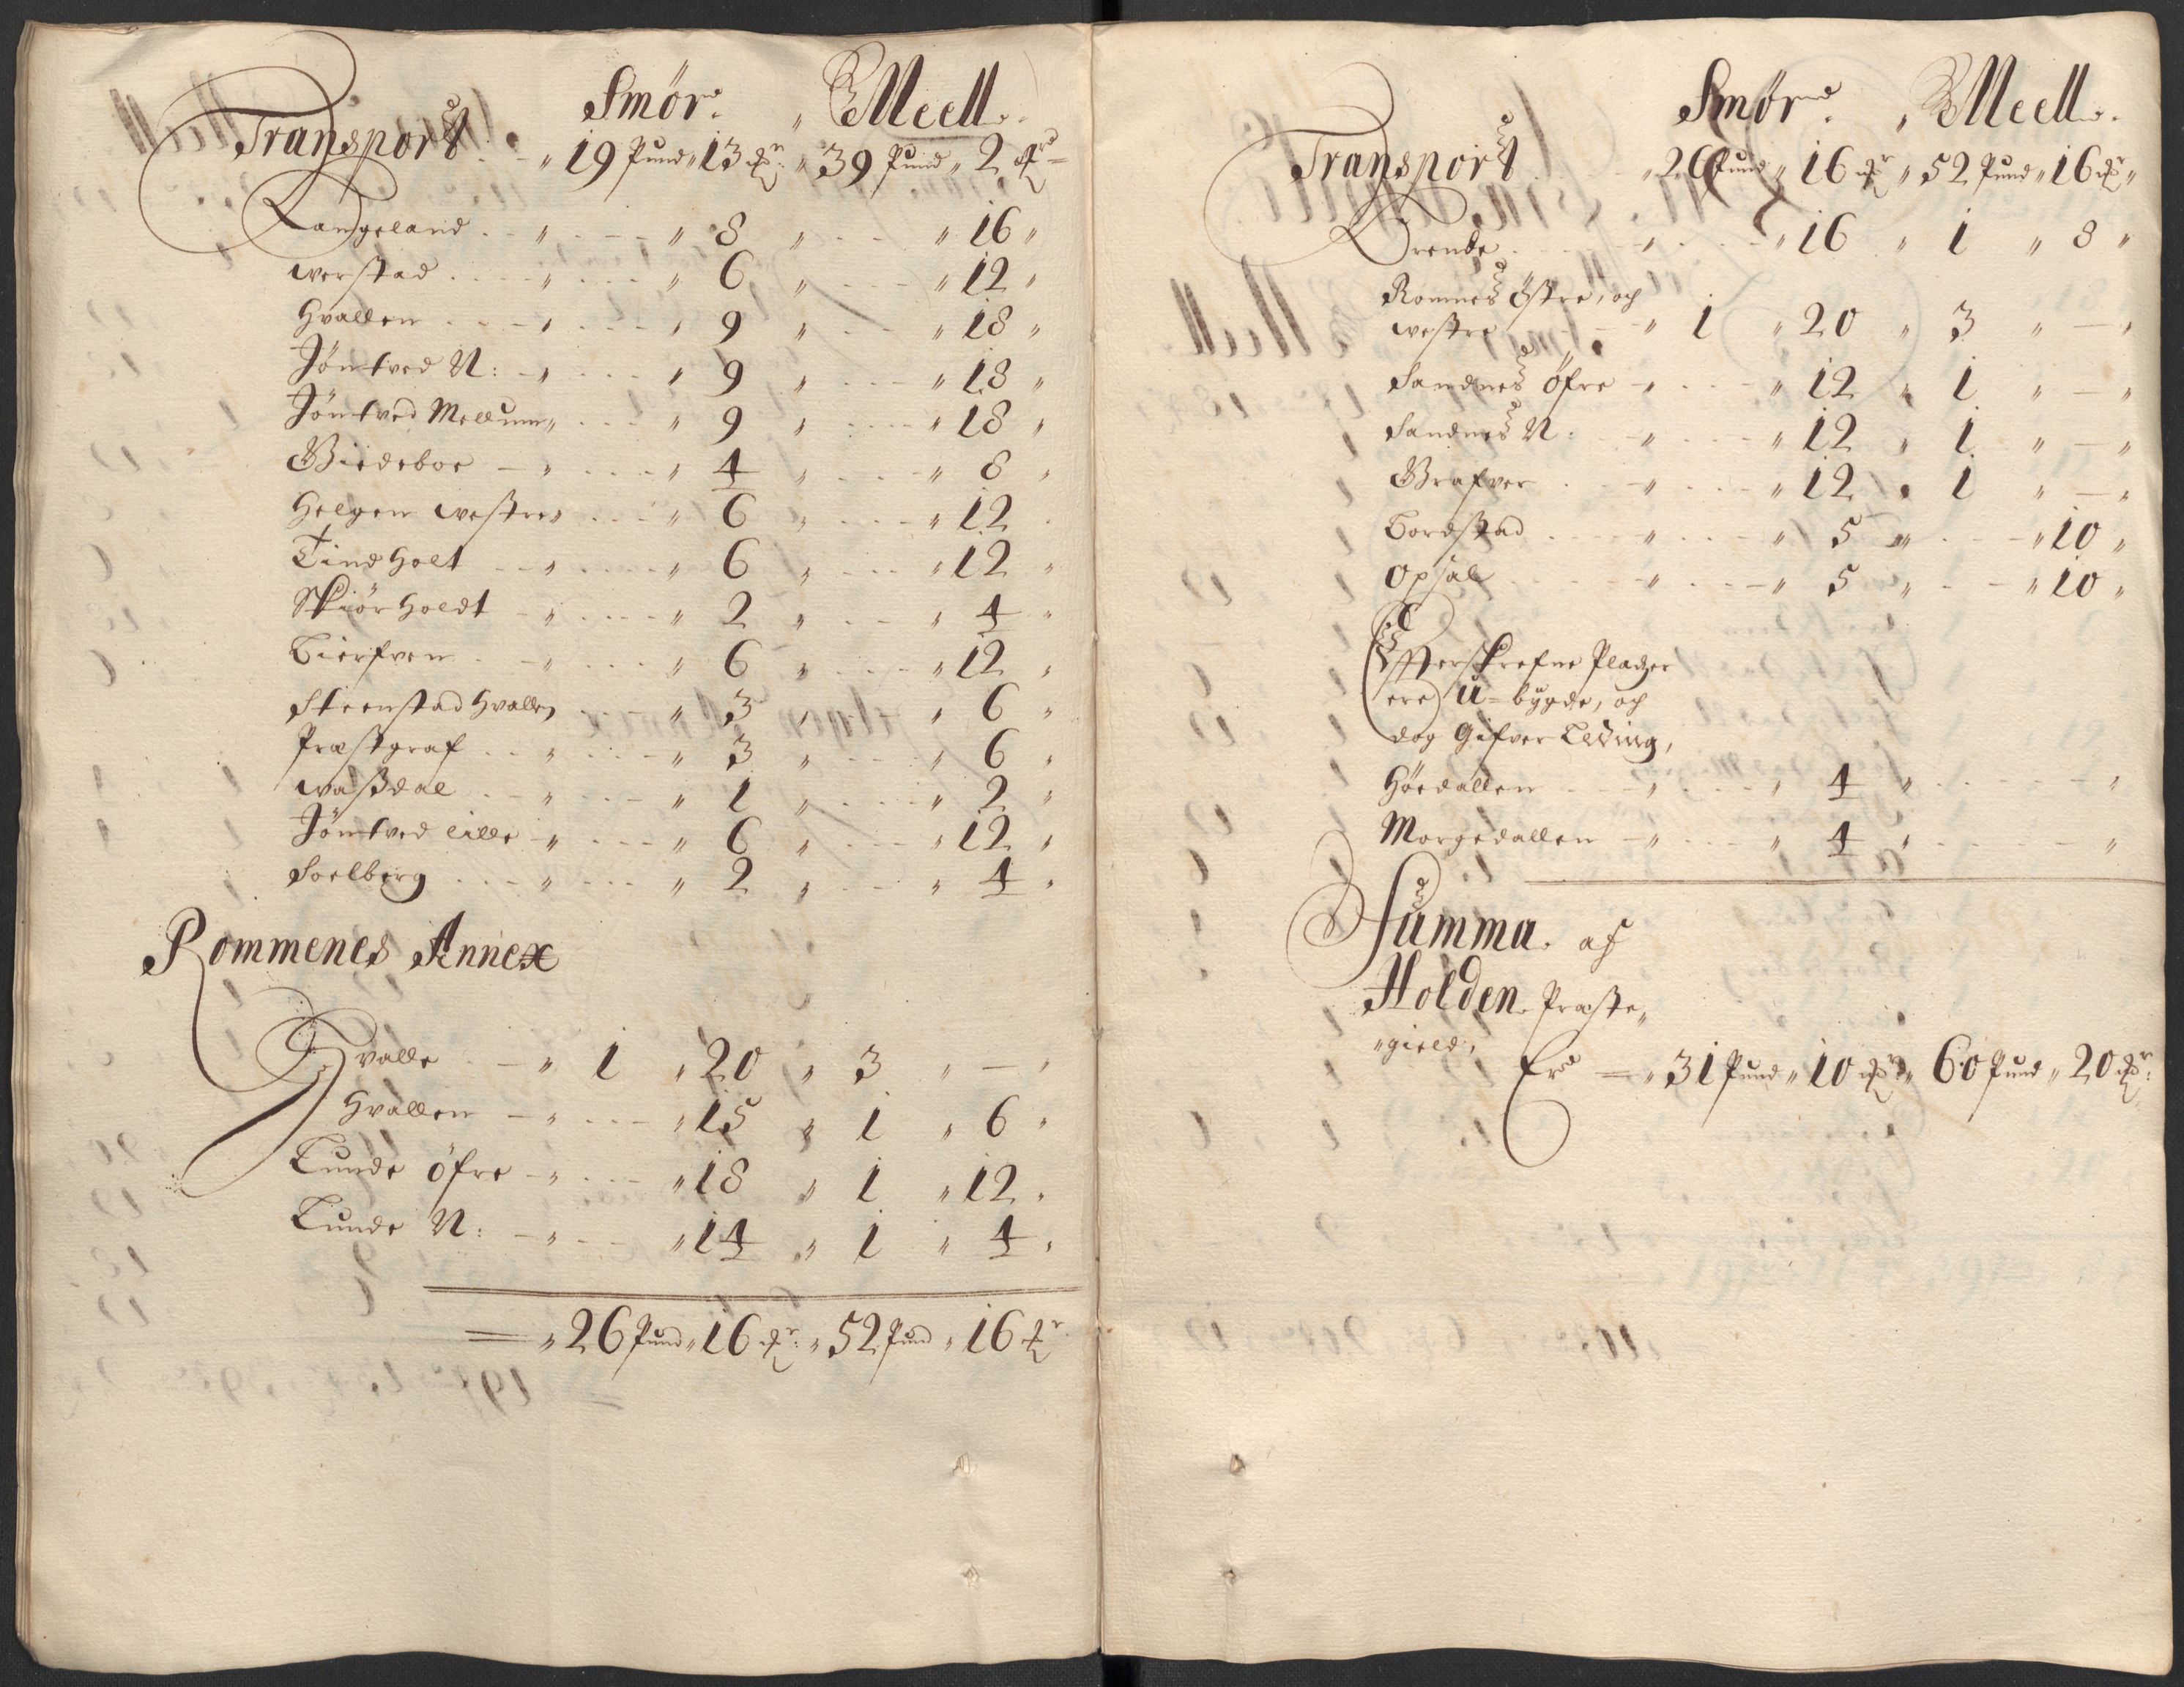 Smør. „ Meell.
Transport. „ 19 Pund „ 13 „ 39 Pund „ 2
Langeland „ „ 8 „ „ 16 „
werstad „ „ 6 „ „ 12 „
Hvallen „ „ 9 „ „ 18 „
Jömtved N: „ „ 9 „ „ 18 „
Jömtved Mellum „ „ 9 „ „ 18 „
Biedeboe „ „ 4 „ „ 8 „
Helgen westre „ „ 6 „ „ 12
Tindholt „ „ 6 „ „ 12 „
Skiörholdt „ „ 2 „ „ 4 „
Bierfven „ „ 6 „ „ 12 „
Steenstad Hvalle „ „ 3 „ „ 6 „
Præstgraf „ „ 3 „ „ 6 „
wassdal „ „ 1 „ „ 2 „
Jömtved lille „ „ 6 „ „ 12 „
Soelberg „ „ 2 „ „ 4 „
Rommenes Annex
Hvalle „ 1 „ 20 „ 3 „ — „
Hvallen „ „ 15 „ 1 „ 6 „
Lunde öfre „ „ 18 „ 1 „ 12 „
Lunde N: „ „ 14 „ 1 „ 4 „
„ 26 Pund „ 16 „ 52 Pund „ 16
Smør. „ Meell.
Transport „ 26 Pund „ 16 „ 52 Pund „ 16 „
„ „ 16 „ 1 „ 8 „
Romnes Östre, och
westre „ 1 „ 20 „ 3 „ — „
Sandnes öfre „ „ 12 „ 1 „ — „
Sandnes N: „ „ 12 „ 1 „ — „
Grafver „ „ 12 „ 1 „ — „
Bordstad „ „ 5 „ „ 10 „
Opsal „ „ 5 „ „ 10 „
Efterskrefne Pladzer
ere U-bygde, och
dog Gifver Leding,
Hördallen „ „ 4 „ „
Morgedallen „ „ 4 „ „
Summa. af
Holden Præste„
„gield,
Er — „ 31 Pund „ 10 „ 60 Pund „ 20